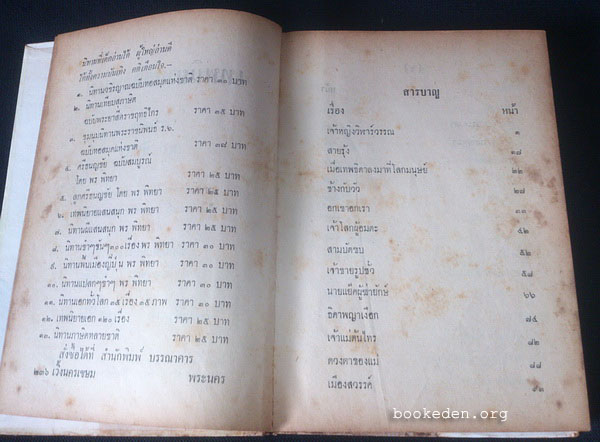 นิทานที่เด็กอ่านได้ ผู้ใหญ่อ่านดี
ได้ทั้งความบันเทิง คติเตือนใจ.—
๑. นิทานจริญาณฉบับหอสมุดแห่งชาติ ราคา ๓๐ บาท
๒. นิทานเทียบสุภาษิต
ฉบับพระยาสีหราชฤทธิไกร ราคา ๓๕ บาท
๓. ชุมนุมนิทานพระราชนิพนธ์ ร.๖.
ฉบับหอสมุดแห่งชาติ ราคา ๓๘ บาท
๔. ศรีธนญชัย ฉบับสมบูรณ์
โดย พร พิทยา ราคา ๒๕ บาท
๕. ลูกศรีธนญชัย โดย พร พิทยา ราคา ๒๕ บาท
๖. เทพนิยายแสนสนุก พร พิทยา ราคา ๒๕ บาท
๗. นิทานผีแสนสนุก พร พิทยา ราคา ๒๕ บาท
๘. นิทานขำๆขันๆ๓๐๐เรื่อง พร พิทยา ราคา ๓๐ บาท
๙. นิทานพื้นเมืองญี่ปุ่น พร พิทยา ราคา ๓๐ บาท
๑๐. นิทานแปลกๆขำๆ พร พิทยา ราคา ๓๐ บาท
๑๑. นิทานเอกทั่วโลก ๓๕ เรื่อง ๓๕ ภาพ ราคา ๓๐ บาท
๑๒. เทพนิยายเอก ๑๒๐ เรื่อง ราคา ๒๕ บาท
๑๓. นิทานภาษิตหลายชาติ ราคา ๒๕ บาท
สั่งซื้อได้ที่ สำนักพิมพ์ บรรณาคาร
๒๓๖ เวิ้งนครเขษม พระนคร
สารบาญ
เรื่อง หน้า
เจ้าหญิงวิหาร์วรรณ ๑
สายรุ้ง ๑๗
เมื่อเทพธิดาลงมาที่โลกมนุษย์ ๒๒
ช้างกับวัว ๒๗
อกเขาอกเรา ๓๓
เจ้าโสกผู้อมตะ ๔๒
สามบัดซบ ๕๒
เจ้าชายรูปชั่ว ๕๗
นายแย๊คผู้ฆ่ายักษ์ ๖๖
ธิดาพญาเงือก ๗๕
เจ้าแม่ต้นไทร ๘๓
ดวงตาของแม่ ๘๗
เมืองสวรรค์ ๙๒
bookeden.org